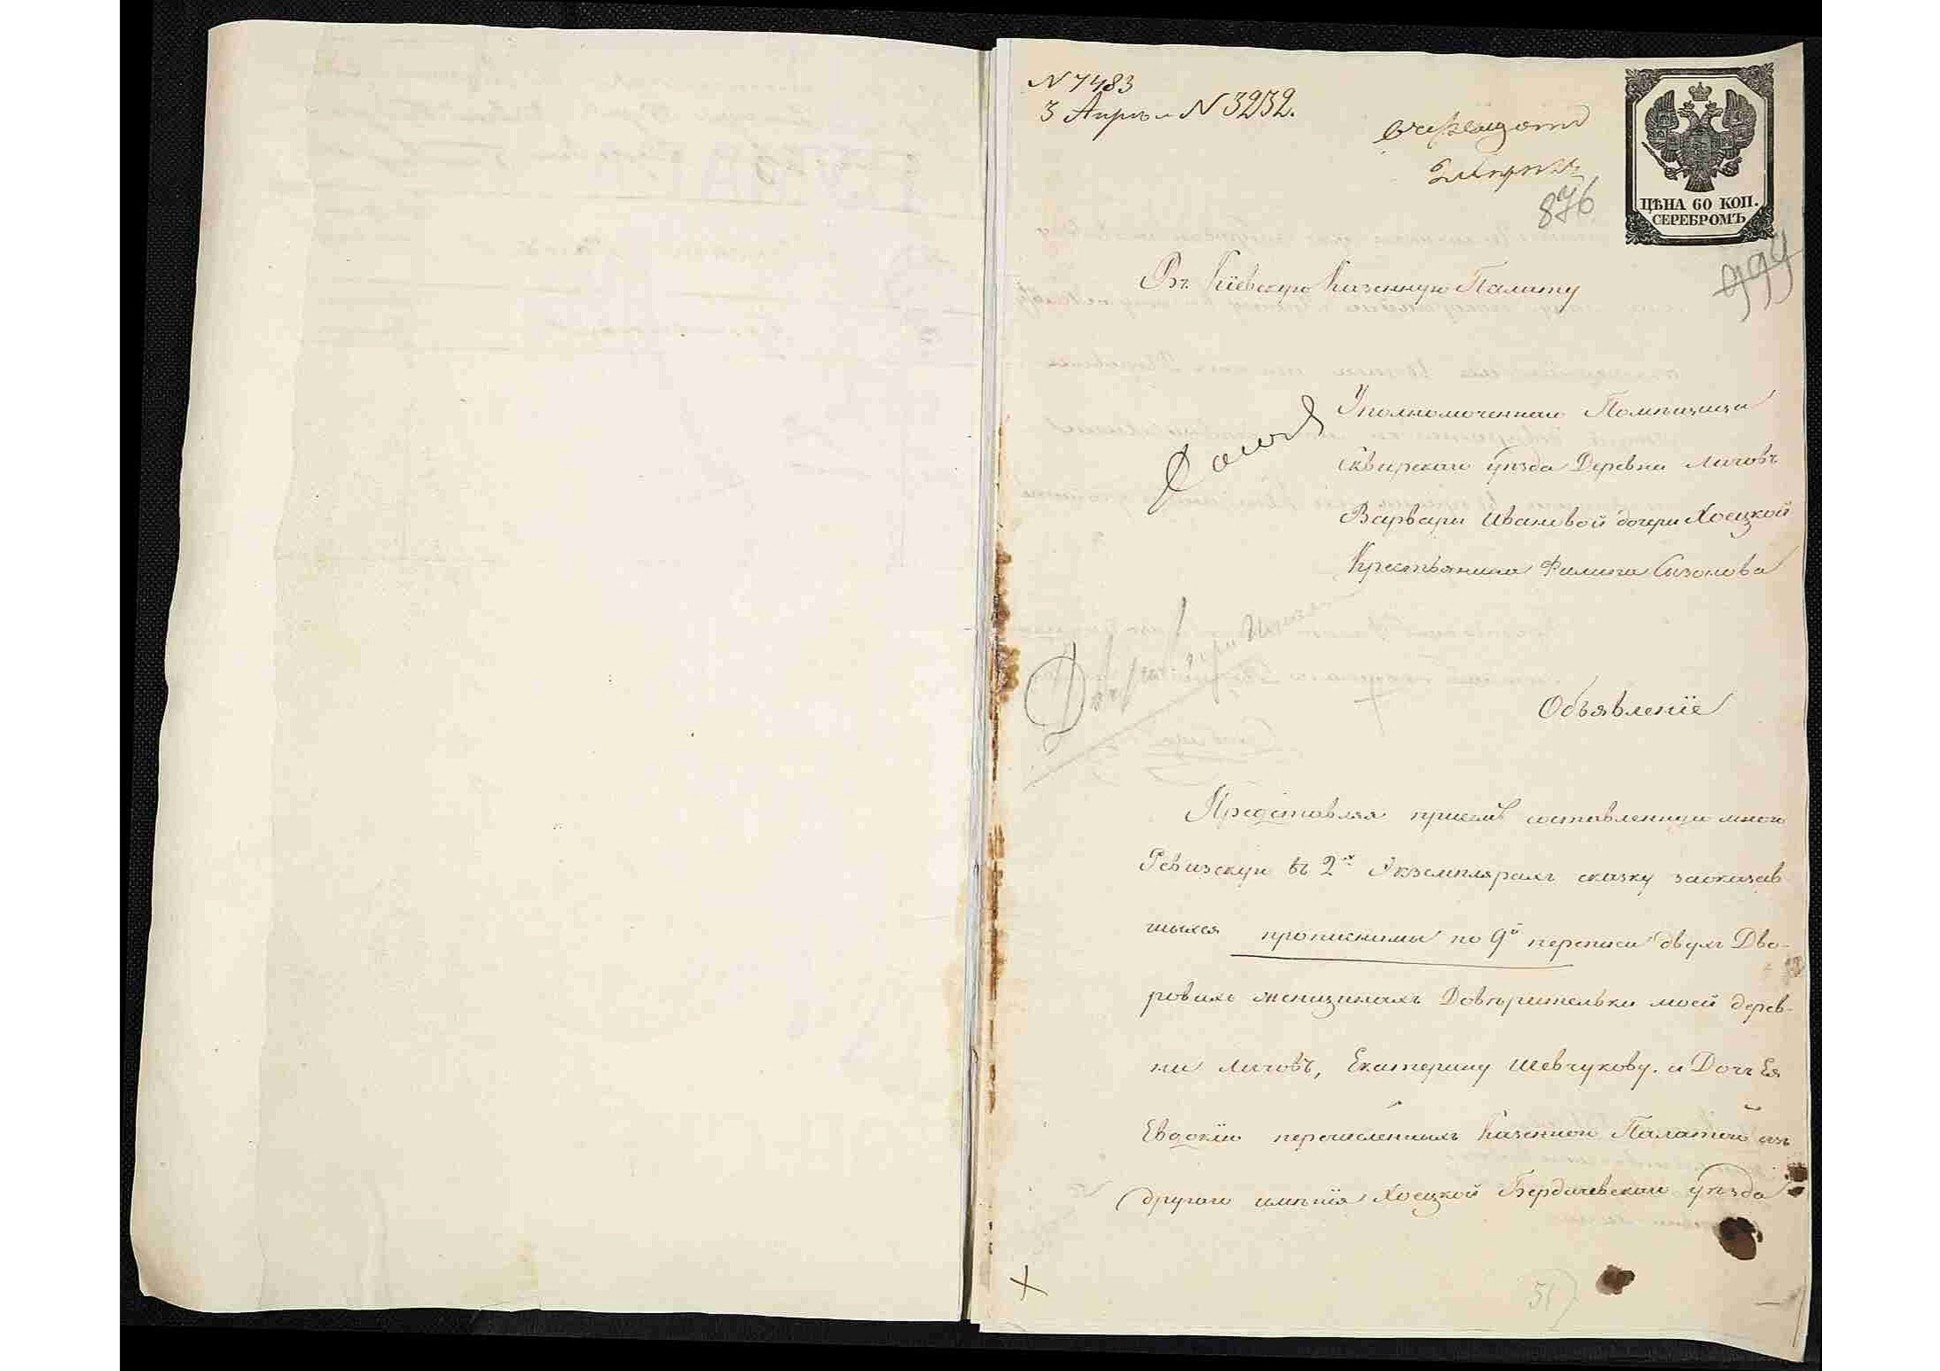 N 7483
3 Апрѣля N 3232.
876
ЦѢНА 60 КОП.
СЕРЕБРОМЪ
999
Въ Кіевскую Казенную Палату
Уполномоченнаго Помѣщицы
Сквирскаго уѣзда Деревни Личовъ
Варвары Ивановой дочери Хоецкой
Крестьянина Филипа Сызонова
Объявленіе
Представляя присемъ составленную мною
Ревизскую въ 2х Экземплярахъ сказку заоказав
шыхся прописными по 9й переписи двухъ Дво-
ровыхъ женщинахъ Довѣрительки моей дерев-
ни Личовъ, Екатерину Шевчукову. и Дочь Ея
Евдокію перечисленныхъ Казенной Палатой изъ
другаго имѣнія Хоецкой Бердичевскаго уѣзда
51